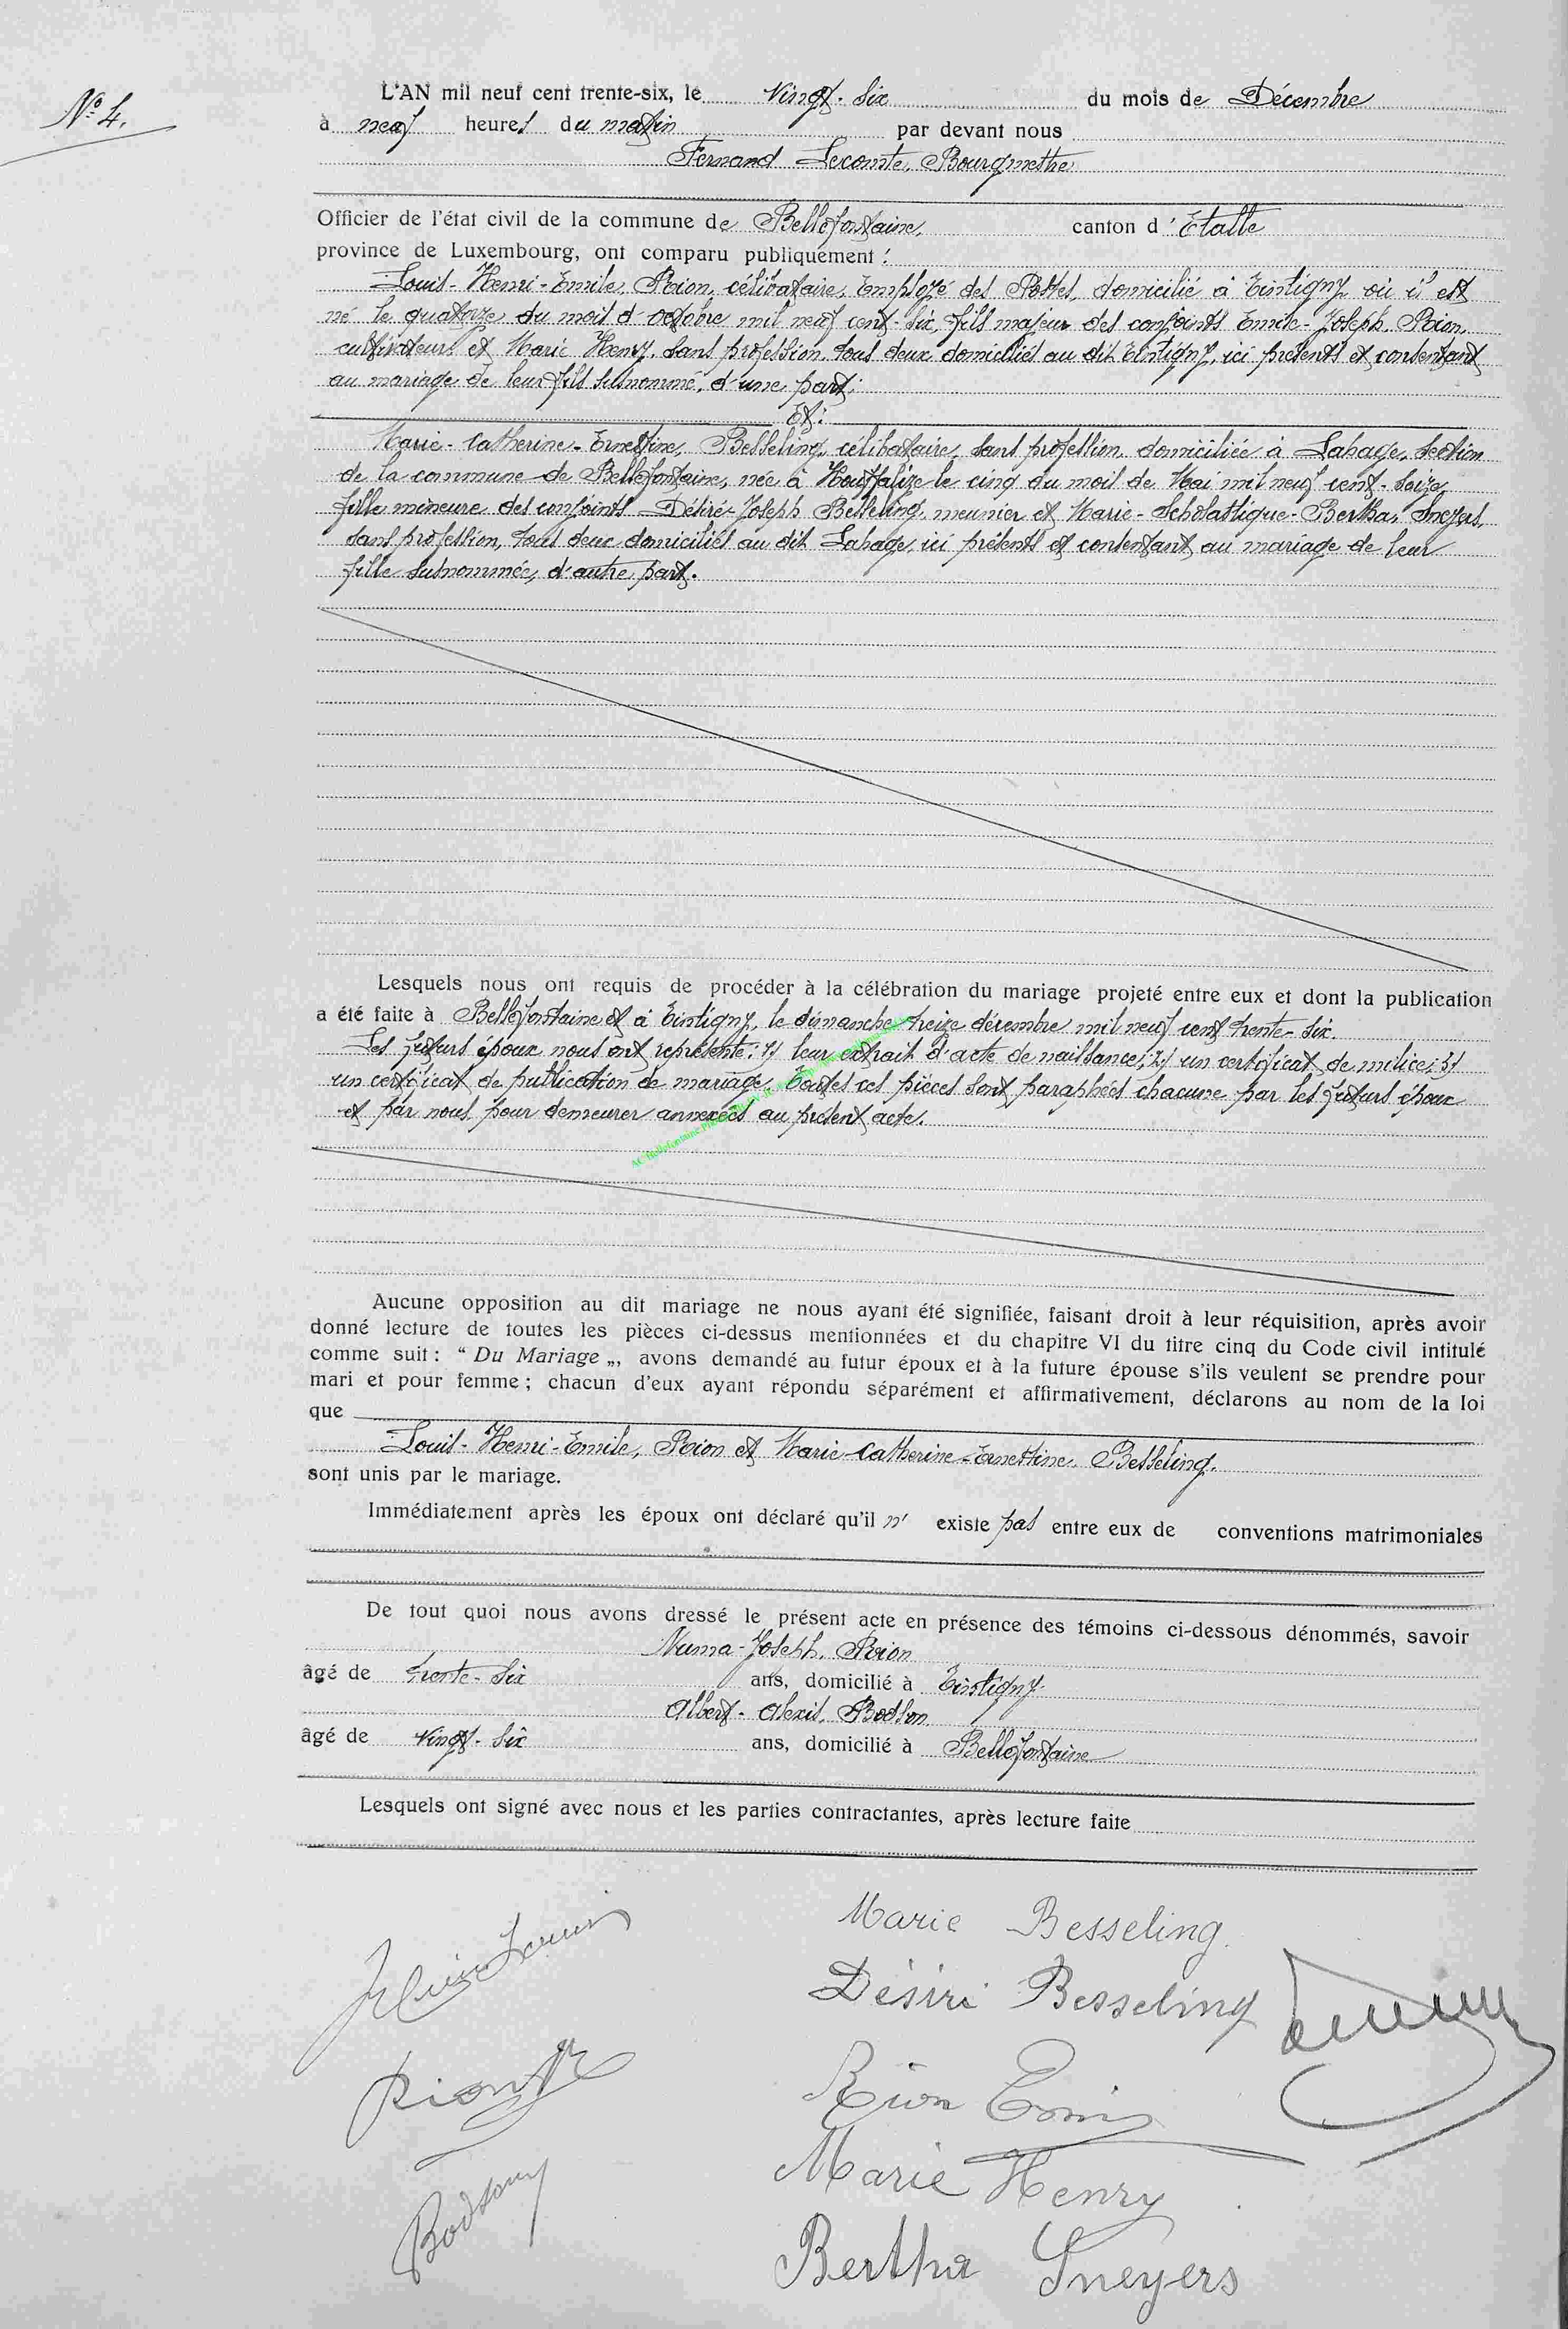 N° 4.
L'AN mil neuf cent trente-six, le Vingt-Six du mois de Décembre
à neuf heures du matin par devant nous
Fernand Lecomte, Bourgmestre
Officier de l'état civil de la commune de Bellefontaine, canton d' Etalle
province de Luxembourg, ont comparu publiquement :
Louis-Henri-Emile, Rion, célibataire, Employé des Postes, domicilié à Tintigny où il est
né le quatorze du mois d'octobre mil neuf cent-six, fils majeur des conjoints Emile-Joseph, Rion,
cultivateur et Marie Henry, sans profession, tous deux domiciliés au dit Tintigny, ici présents et consentant
au mariage de leur fils susnommé, d'une part;
Et:
Marie-Catherine-Ernestine, Besseling, célibataire, sans profession, domiciliée à Lahage, section
de la commune de Bellefontaine, née à Houffalize le cinq du mois de Mai mil neuf cent-seize,
fille mineure des conjoints Désiré-Joseph Besseling, meunier et Marie-Scholastique-Bertha, Sneyers,
sans profession, tous deux domiciliés au dit Lahage, ici présents et consentant au mariage de leur
fille susnommée, d'autre part.
Lesquels nous ont requis de procéder à la célébration du mariage projeté entre eux et dont la publication
a été faite à Bellefontaine et à Tintigny, le dimanche treize décembre mil neuf cent trente-six.
Les futurs époux nous ont représenté: 1) leur extrait d'acte de naissance; 2) un certificat de milice; 3)
un certificat de publication de mariage. Toutes ces pièces sont paraphées chacune par les futurs époux
et par nous pour demeurer annexées au présent acte.
AC Bellefontaine
Aucune opposition au dit mariage ne nous ayant été signifiée, faisant droit à leur réquisition, après avoir
donné lecture de toutes les pièces ci-dessus mentionnées et du chapitre VI du titre cinq du Code civil intitulé
comme suit : “ Du Mariage „, avons demandé au futur époux et à la future épouse s'ils veulent se prendre pour
mari et pour femme ; chacun d'eux ayant répondu séparément et affirmativement, déclarons au nom de la loi
que
Louis-Henri-Emile, Rion et Marie-Catherine-Ernestine, Besseling.
sont unis par le mariage.
Immédiatement après les époux ont déclaré qu'il n' existe pas entre eux de conventions matrimoniales
De tout quoi nous avons dressé le présent acte en présence des témoins ci-dessous dénommés, savoir
Numa-Joseph, Rion
âgé de trente-six ans, domicilié à Tintigny
Albert-Alexis, Bodson
âgé de vingt-six ans, domicilié à Bellefontaine
Lesquels ont signé avec nous et les parties contractantes, après lecture faite
Marie Besseling
Désiré Besseling
Rion
Rion
Marie Henry
Bodson
Bertha Sneyers